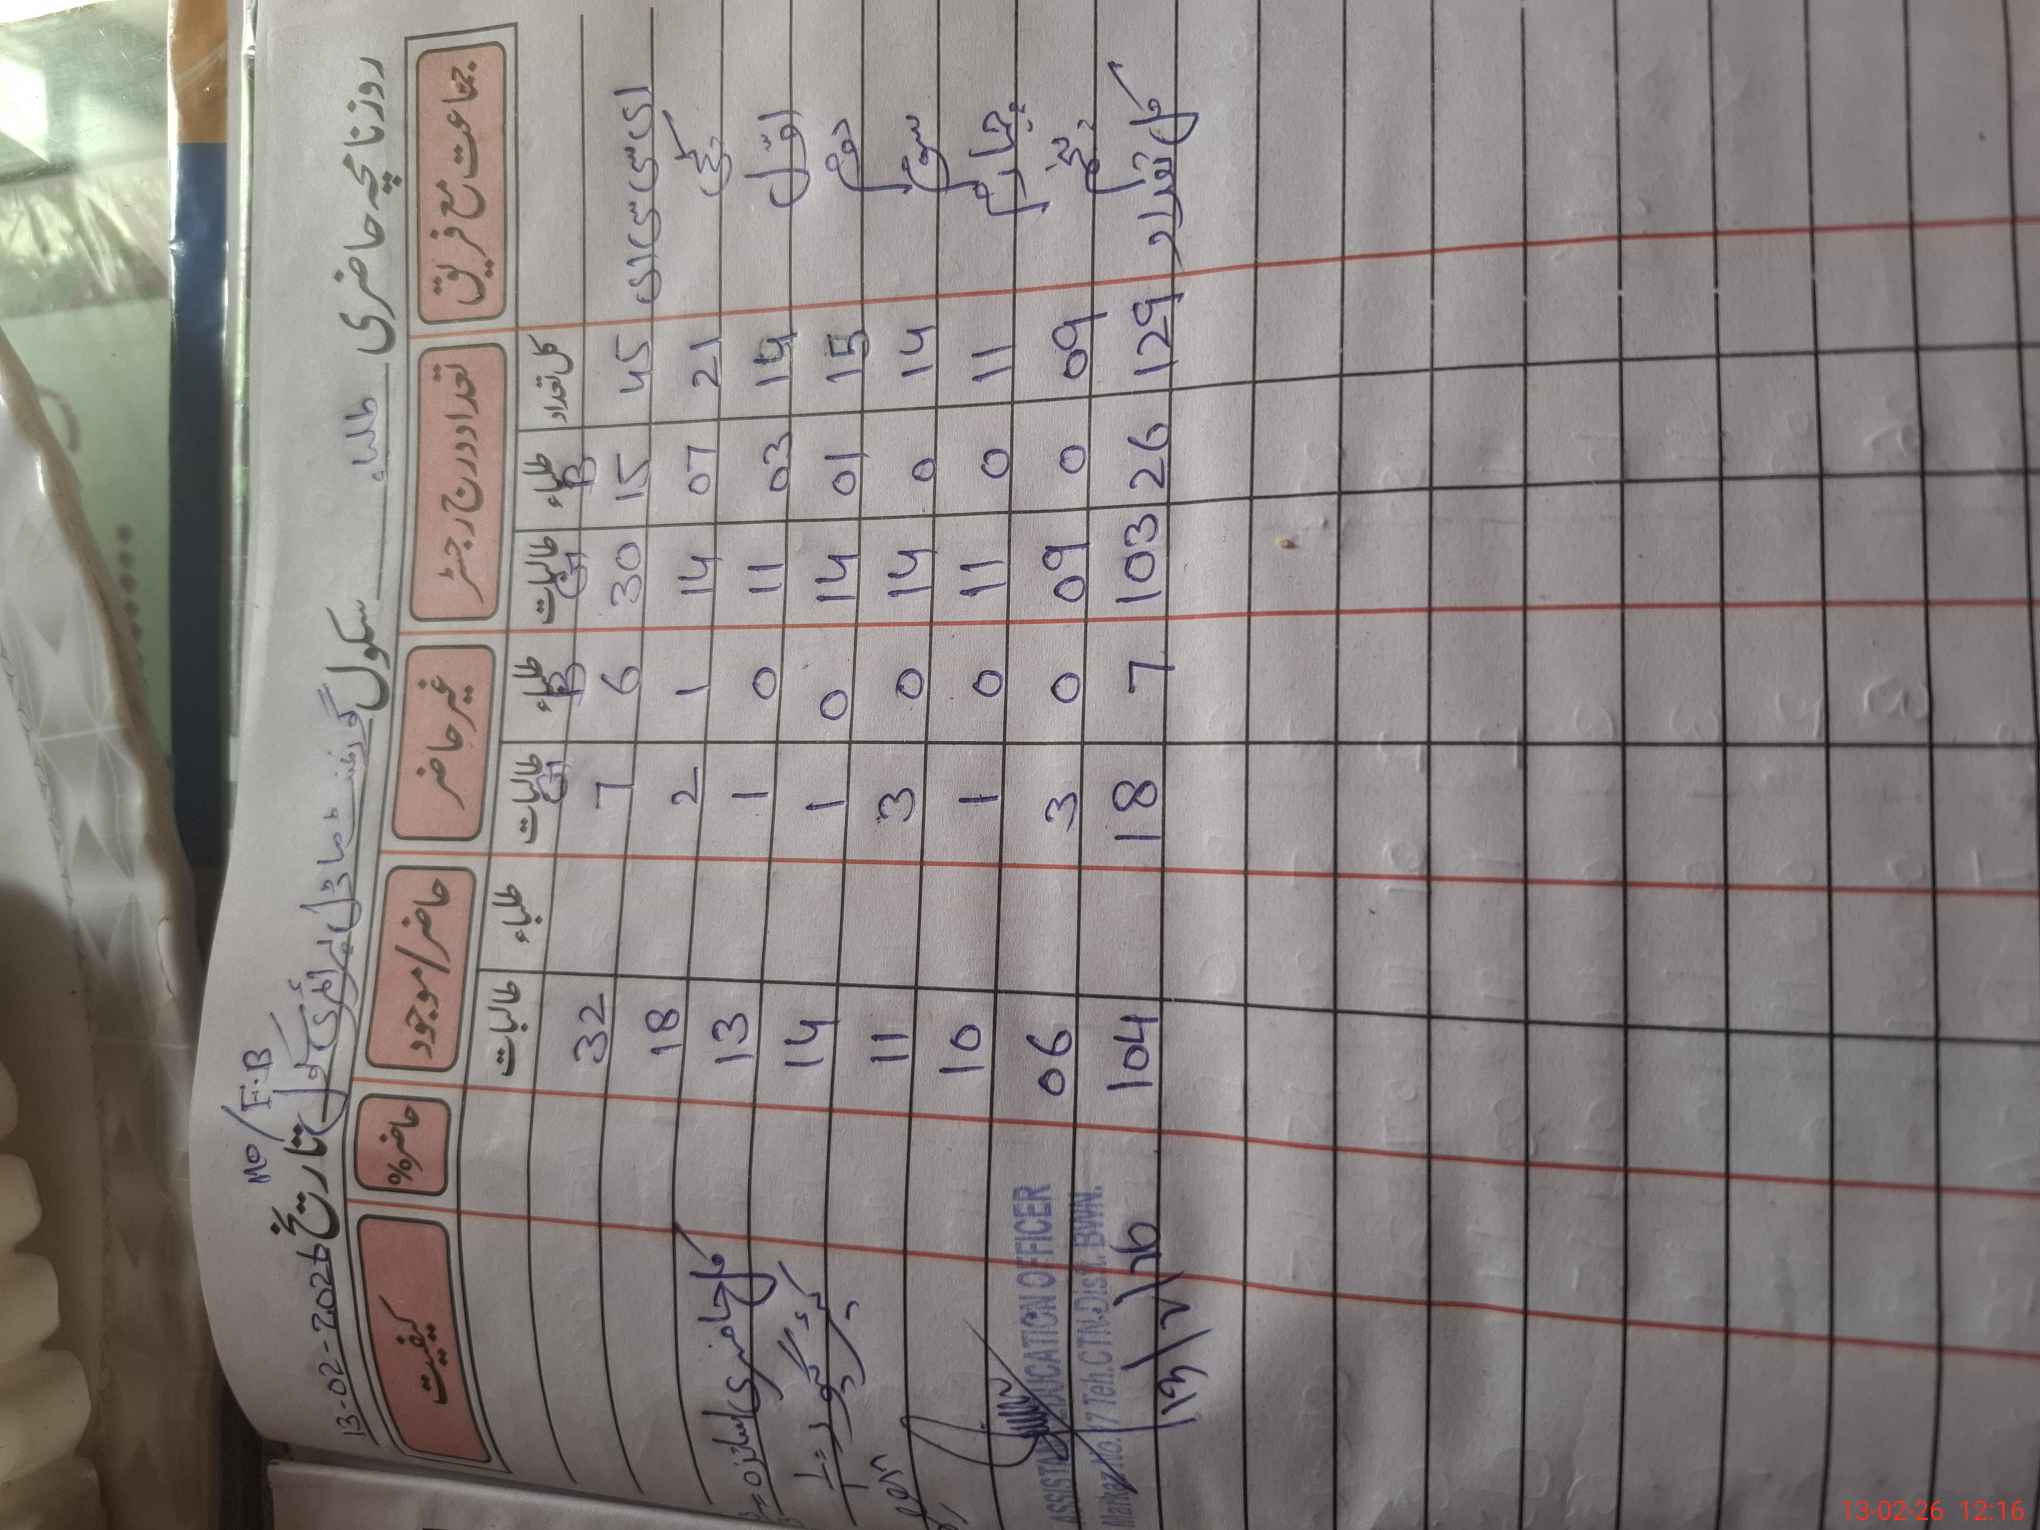 روزنامچہ حاضری طلباء سکول گورنمنٹ ماڈل پرائمری سکول MO/F.B تاریخ 13-02-2026
جماعت مع فریق تعداد درج رجسٹر غیر حاضر حاضر/موجود حاضر% کیفیت
کل تعداد طلباء B طالبات G طلباء B طالبات G طلباء طالبات
ای سی سی ای 45 15 30 6 7 32
کچی 21 07 14 1 2 18
اوّل 14 03 11 0 1 13
دوم 15 01 14 0 1 14
سوم 14 0 14 0 3 11
چہارم 11 0 11 0 1 10
پنجم 09 0 09 0 3 06
کل تعداد 129 26 103 7 18 104
کل حاضری اساتذہ =
ASSISTANT EDUCATION OFFICER
Markaz No. 17 Teh.CTN.Distt. BWN.
13/2/26
13-02-26 12:16